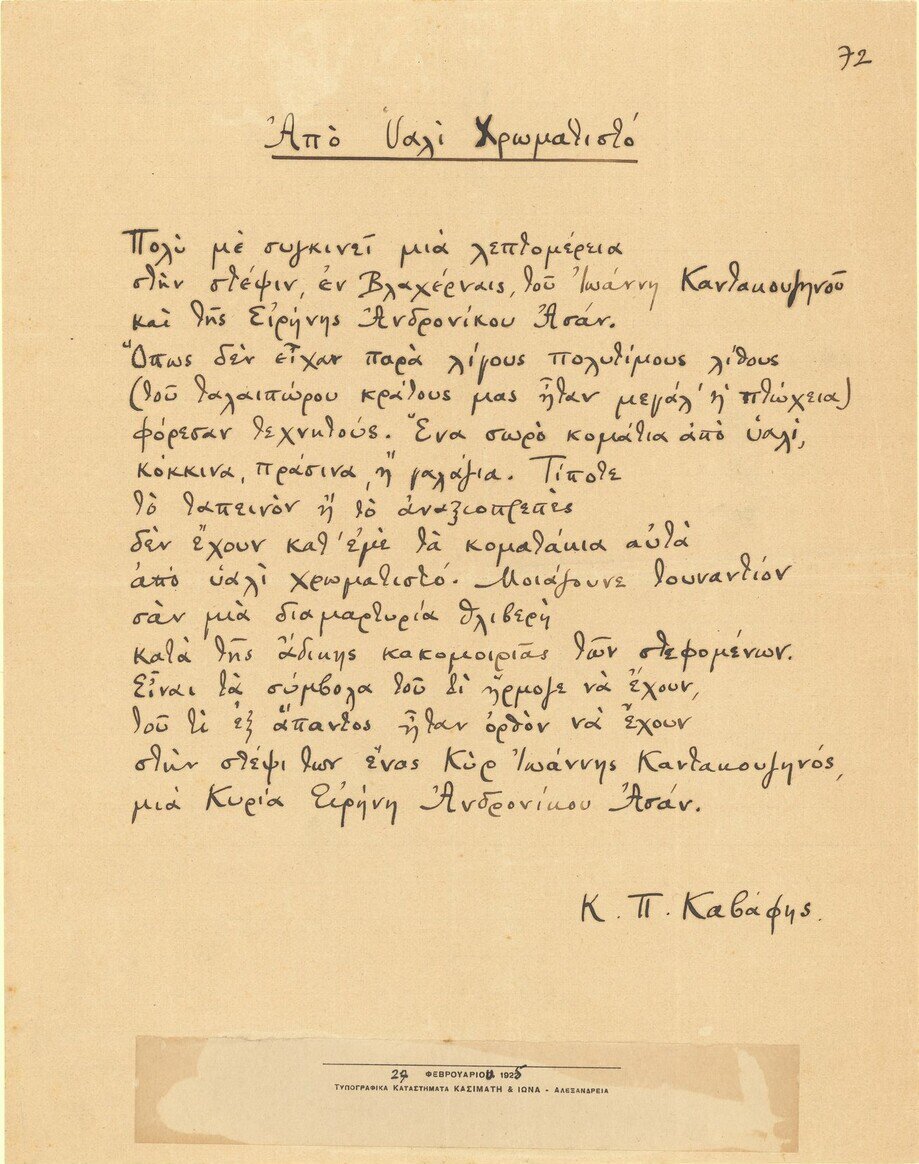 72
Ἀπὸ Ὑαλὶ Χρωματιστό
Πολὺ μὲ συγκινεῖ μιὰ λεπτομέρεια
στὴν στέψιν, ἐν Βλαχέρναις, τοῦ Ἰωάννη Καντακουζηνοῦ
καὶ τῆς Εἰρήνης Ἀνδρονίκου Ἀσάν.
Ὅπως δὲν εἶχαν παρὰ λίγους πολυτίμους λίθους
(τοῦ ταλαιπώρου κράτους μας ἦταν μεγάλ' ἡ πτώχεια)
φόρεσαν τεχνητούς. Ἕνα σωρὸ κομάτια ἀπὸ ὑαλί,
κόκκινα, πράσινα, ἢ γαλάζια. Τίποτε
τὸ ταπεινὸν ἢ τὸ ἀναξιοπρεπὲς
δὲν ἔχουν κατ' ἐμὲ τὰ κοματάκια αὐτὰ
ἀπὸ ὑαλὶ χρωματιστό. Μοιάζουνε τουναντίον
σὰν μιὰ διαμαρτυρία θλιβερὴ
κατὰ τῆς ἄδικης κακομοιριᾶς τῶν στεφομένων.
Εἶναι τὰ σύμβολα τοῦ τί ἥρμοζε νὰ ἔχουν,
τοῦ τί ἐξ ἅπαντος ἦταν ὀρθὸν νὰ ἔχουν
στὴν στέψι των ἕνας Κὺρ Ἰωάννης Καντακουζηνός,
μιὰ Κυρία Εἰρήνη Ἀνδρονίκου Ἀσάν.
Κ. Π. Καβάφης.
ΦΕΒΡΟΥΑΡΙΟΥ 1925
ΤΥΠΟΓΡΑΦΙΚΑ ΚΑΤΑΣΤΗΜΑΤΑ ΚΑΣΙΜΑΤΗ & ΙΩΝΑ - ΑΛΕΞΑΝΔΡΕΙΑ